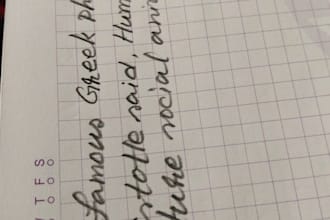 famous Greek ph
istotle said, Hum
ture social ani
T F S